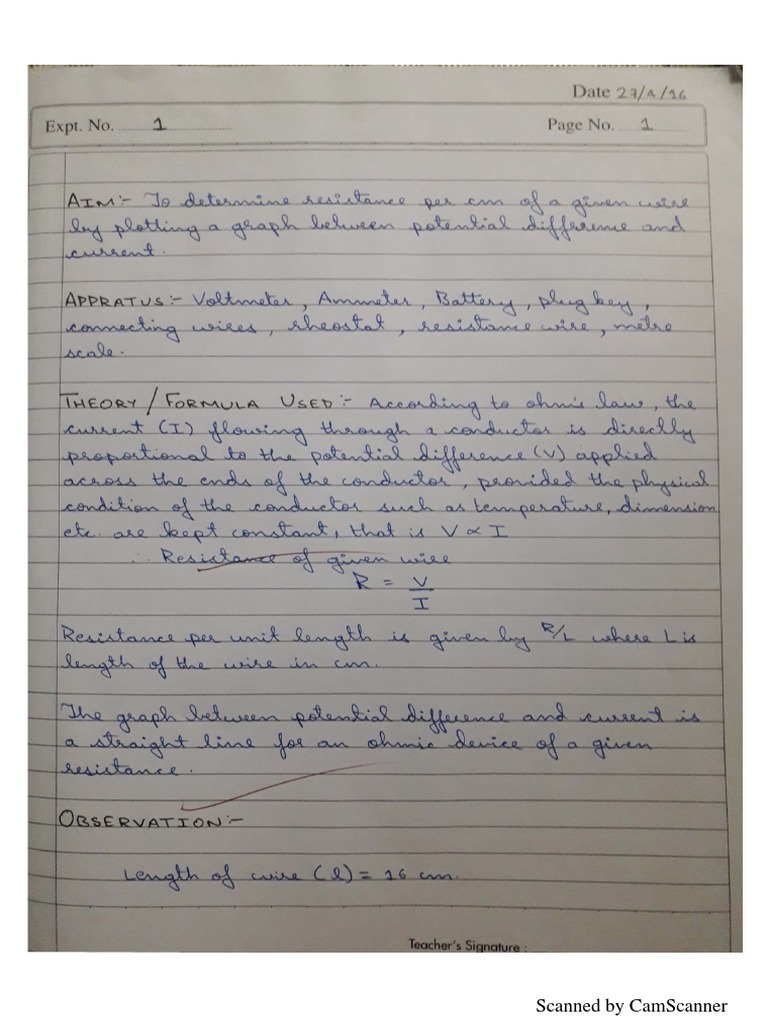 Date 27/4/16
Expt. No. 1 Page No. 1
AIM:- To determine resistance per cm of a given wire
by plotting a graph between potential difference and
current.
APPRATUS:- Voltmeter, Ammeter, Battery, plug key,
connecting wires, rheostat, resistance wire, metre
scale.
THEORY / FORMULA USED:- According to ohm's law, the
current (I) flowing through a conductor is directly
proportional to the potential difference (V) applied
across the ends of the conductor, provided the physical
condition of the conductor such as temperature, dimension
etc. are kept constant, that is V ∝ I
∴ Resistance of given wire
R = V
I
Resistance per unit length is given by R/L where L is
length of the wire in cm.
The graph between potential difference and current is
a straight line for an ohmic device of a given
resistance.
OBSERVATION:-
Length of wire (l) = 16 cm.
Teacher's Signature :
Scanned by CamScanner